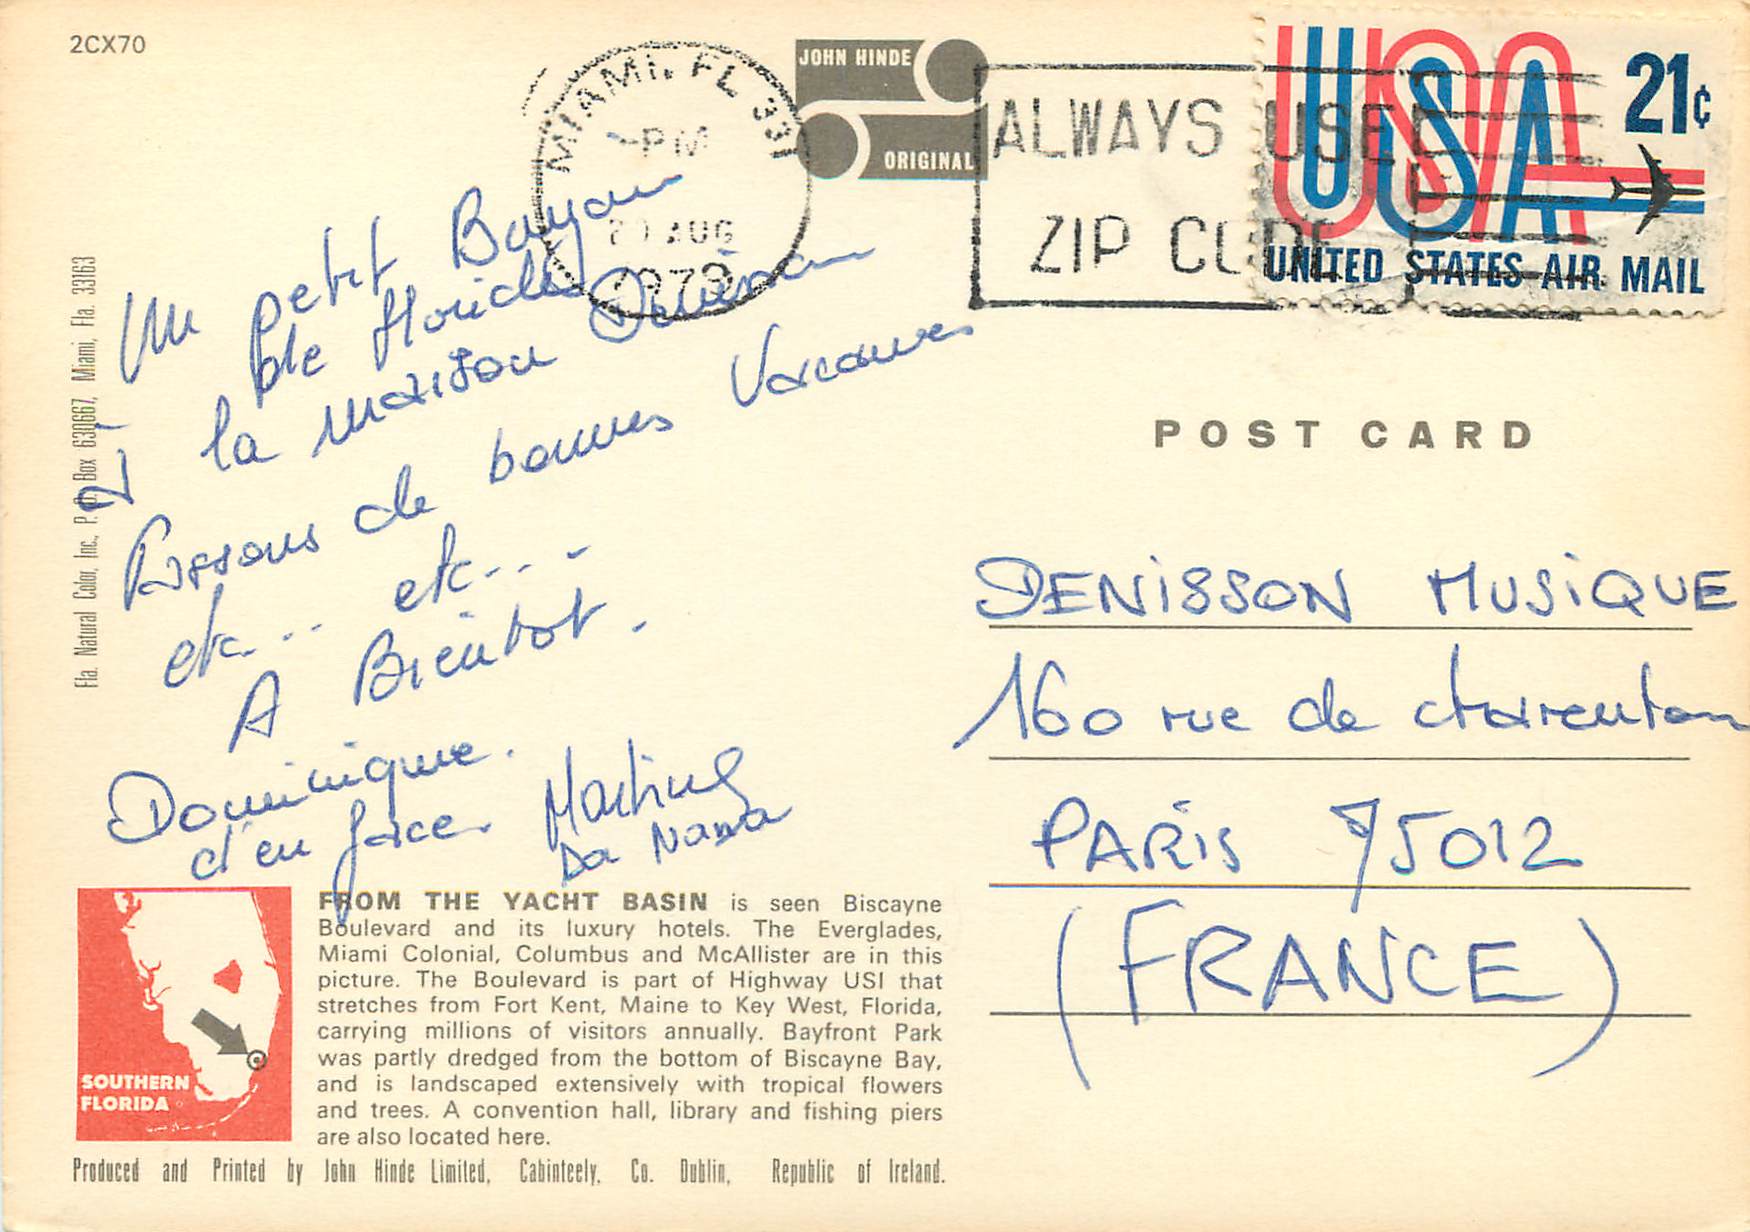 2CX70
JOHN HINDE
ORIGINAL
MIAMI, FL 331
PM
AUG
1979
ALWAYS USE
ZIP CODE
USA
21¢
UNITED STATES AIR MAIL
Un petit Bonjour
de Floride
à la maison Denisson
Passons de bonnes Vacances
etc... etc...
A Bientot.
Dominique.
d'en face. Martine
Da Nana
Fla. Natural Color, Inc., P. O. Box 630667, Miami, Fla. 33163
POST CARD
DENISSON MUSiQUE
160 rue de charenton
PARis 75012
(FRANCE)
SOUTHERN
FLORIDA
FROM THE YACHT BASIN is seen Biscayne
Boulevard and its luxury hotels. The Everglades,
Miami Colonial, Columbus and McAllister are in this
picture. The Boulevard is part of Highway USI that
stretches from Fort Kent, Maine to Key West, Florida,
carrying millions of visitors annually. Bayfront Park
was partly dredged from the bottom of Biscayne Bay,
and is landscaped extensively with tropical flowers
and trees. A convention hall, library and fishing piers
are also located here.
Produced and Printed by John Hinde Limited, Cabinteely, Co. Dublin, Republic of Ireland.